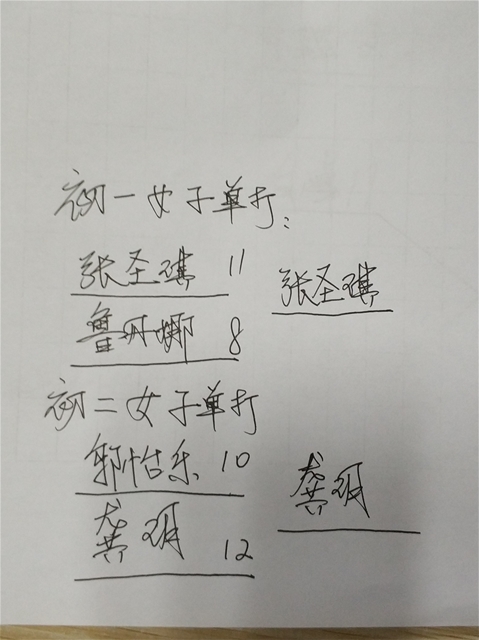 初一女子单打:
张圣琪 11
张圣琪
鲁丹娜 8
初二女子单打
郭怡乐 10
龚玥
龚玥 12